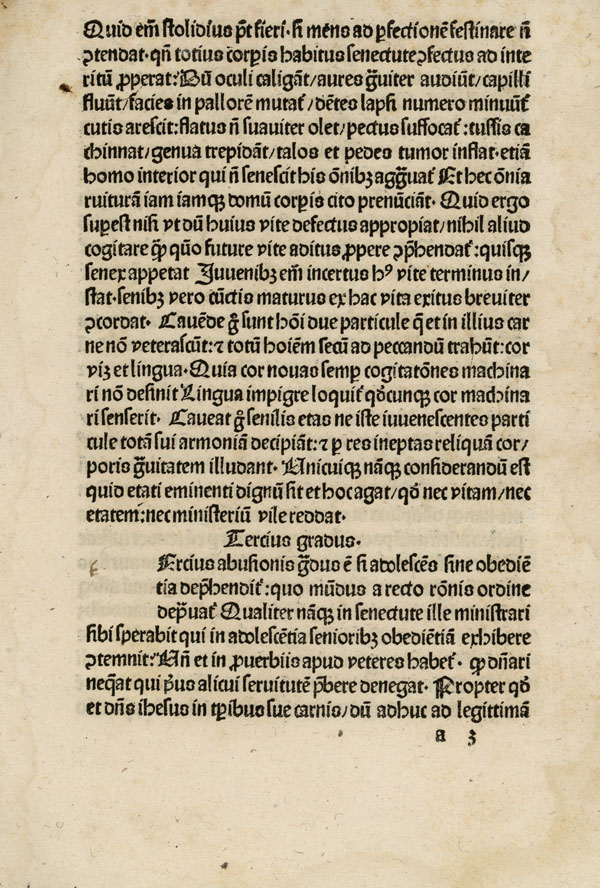 Quid em̄ stolidius pt̄ fieri. si mens ad ꝑfectionē festinare n̄
ꝯtendat. qn̄ totius corꝑis habitus senectute ꝯfectus ad inte
ritū ꝓperat: Dū oculi caligāt/aures g̃uiter audiūt/capilli
fluūt/facies in pallorē mutat᷑/dētes lapsi numero minuūt᷑
cutis arescit: flatus n̄ suauiter olet/pectus suffocat᷑: tussis ca
chinnat/genua trepidāt/talos et pedes tumor inflat. etiā
homo interior qui n̄ senescit his ōnibꝫ agg̃uat᷑ Et hec ōnia
ruiturā iam iamqꝫ domū corꝑis cito prenūciāt. Quid ergo
suꝑest nisi vt dū huius vite defectus appropiat/nihil aliud
cogitare qꝫ̄ quō future vite aditus ꝓpere ꝯp̄hendat᷑: quisqꝫ
senex appetat Iuuenibꝫ em̄ incertus hꝰ vite terminus in/
stat. senibꝫ vero cūctis maturus ex hac vita exitus breuiter
ꝯcordat. Cauēde g̃ sunt hōi due particule q̄ et in illius car
ne nō veterascūt: ⁊ totū hoīem secū ad peccandū trahūt: cor
viꝫ et lingua. Quia cor nouas semꝑ cogitatōnes machina
ri nō desinit Lingua impigre loquit᷑ qd̓cunqꝫ cor machina
ri senserit. Caueat g̃ senilis etas ne iste iuuenescentes parti
cule totā sui armoniā decipiāt: ⁊ ꝑ res ineptas reliquā cor/
poris g̃uitatem illudant. Unicuiqꝫ nāqꝫ considerandū est
quid etati eminenti dignū sit et hoc agat/qd̓ nec vitam/nec
etatem: nec ministeriū vile reddat.
Tercius gradus.
Ercius abusionis g̃dus ē si adolescēs sine obediē
tia dep̄hendit᷑: quo mūdus a recto rōnis ordine
dep̄uat᷑ Qualiter nāqꝫ in senectute ille ministrari
sibi sperabit qui in adolescētia senioribꝫ obediētiā exhibere
ꝯtemnit: Un̄ et in ꝓuerbiis apud veteres habet᷑. ꝙ dn̄ari
neq̄at qui p̓us alicui seruitutē p̄bere denegat. Propter qd̓
et dn̄s ihesus in tp̄ibus sue carnis/dū adhuc ad legittimā
a 3